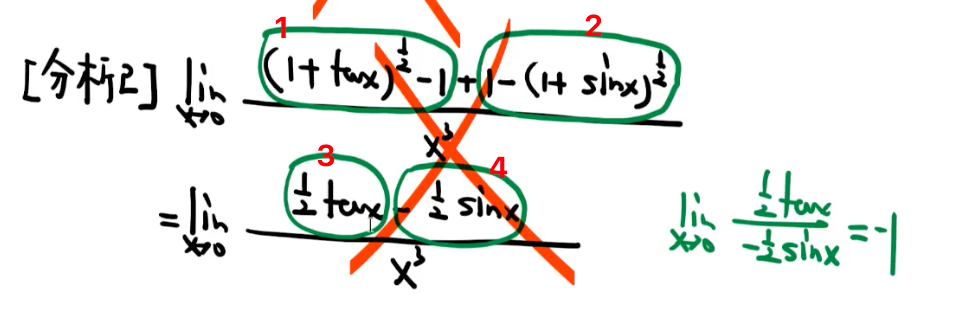 1 2
[分析2] lim x→0 ((1+tanx)^½ -1 + 1-(1+sinx)^½) / x³
3 4
= lim x→0 (½tanx - ½sinx) / x³
lim x→0 (½tanx) / (-½sinx) = -1